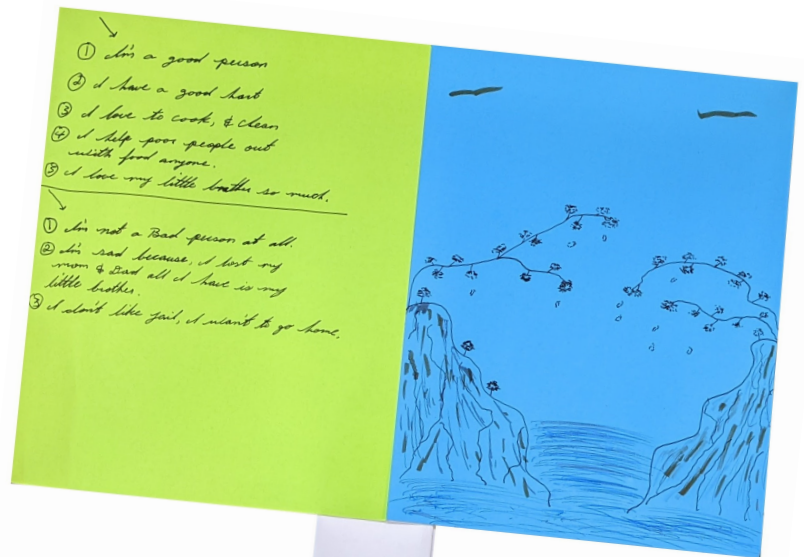 ① I'm a good person
② I have a good hart
③ I love to cook, & clean
④ I help poor people out
with food anyone.
⑤ I love my little brother so much.
① I'm not a Bad person at all.
② I'm sad because, I lost my
mom & Dad all I have is my
little brother.
③ I don't like jail, I want to go home.